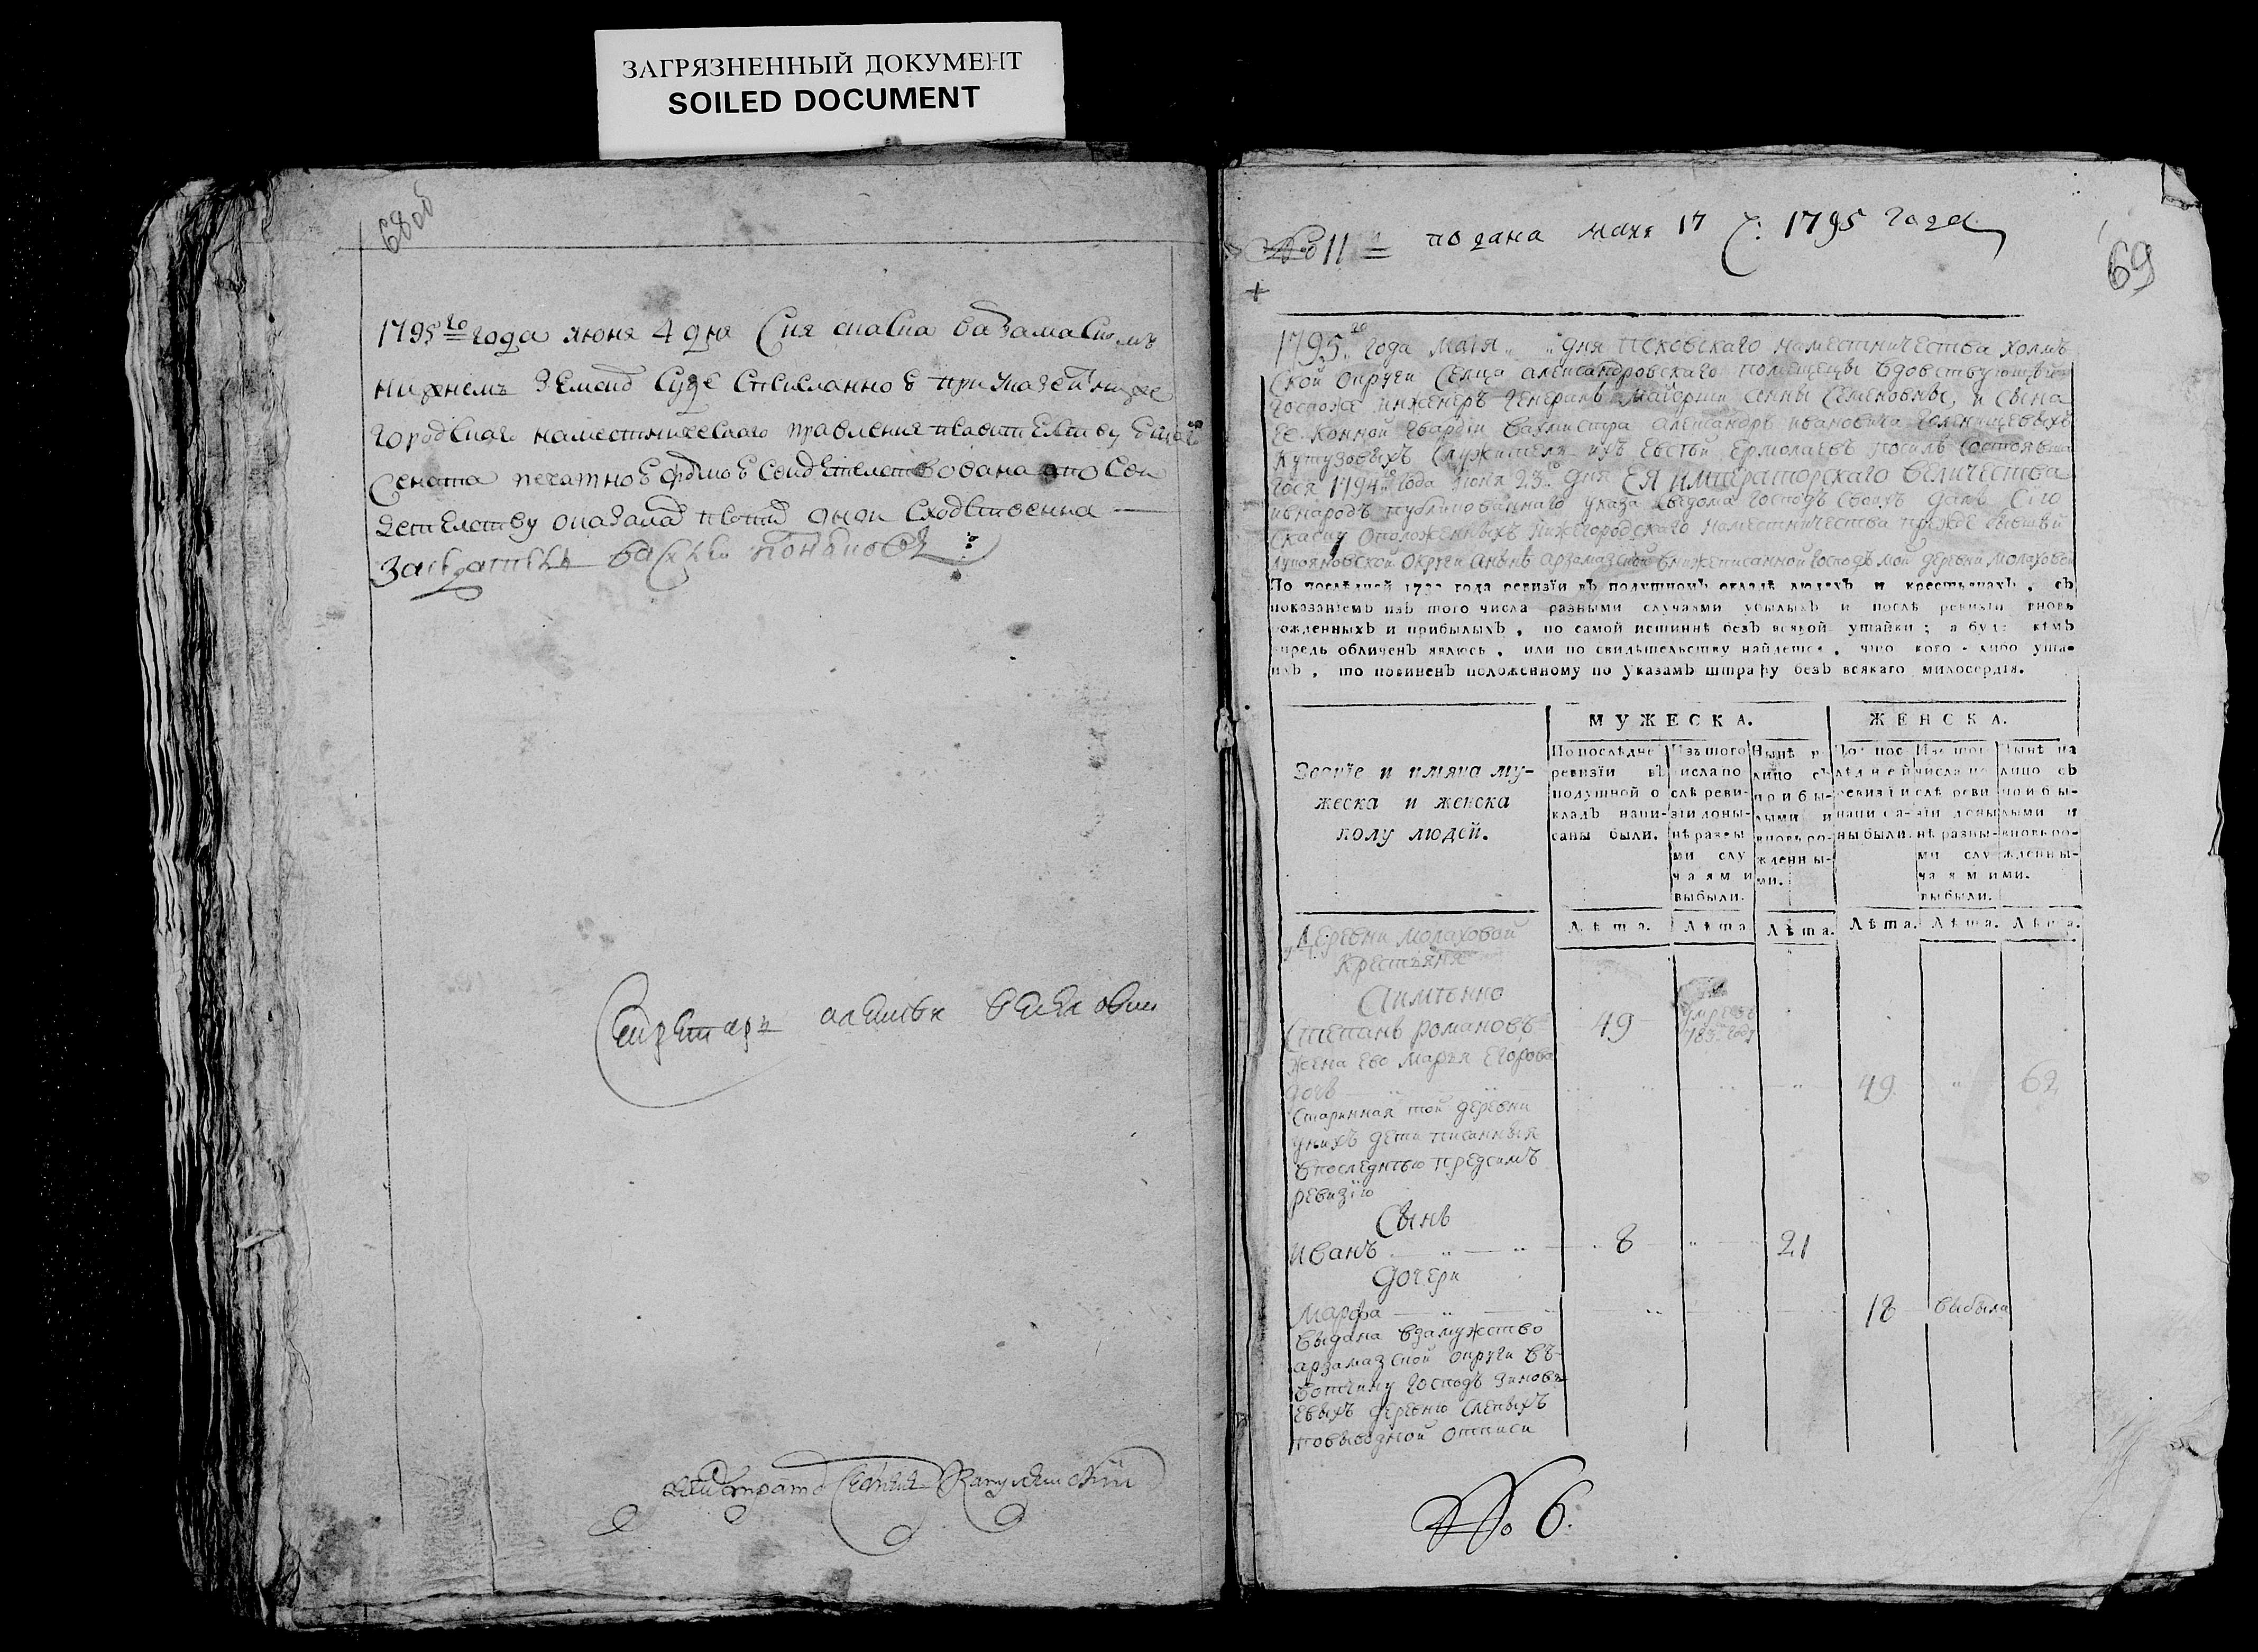 ЗАГРЯЗНЕННЫЙ ДОКУМЕНТ
SOILED DOCUMENT
68об
1795го года июня 4 дня Сия скаска варзамаском
нижнем земском суде при указе из ниже
городскаго наместническаго правления
Сената печатное сои
детелству оказалас сходственна
Заседатель василей
Секретарь алексей
№ 11 подана маия 17 ч: 1795 года
69
1795го года маия „ „ дня псковскаго наместничества холмъ
ской округи Селца александровскаго помещицы вдовствующей
госпоже инженеръ Генералъ маиорши анны Семеновны, и сына
Ее конной гвардии вахмистра александръ ивановича голенищевыхъ
кутузовыхъ служитель ихъ Евстей Ермолаевъ посилѣ Состоявша
гося 1794го года июня 23го дня ЕЯ императорскаго величества
ивнародъ публикованнаго указа сведома господъ своихъ далъ сию
скаску оположенныхъ нижегородскаго наместничества прежде бывшей
лукояновской округи анынѣ арзамазской внижеписанной господъ мой деревни малаховой
По послѣдней 1782 года ревизїи въ подушномъ окладѣ людехъ и крестьянахъ, съ
показанїемъ изъ того числа разными случаями убылыхъ и послѣ ревизїи вновь
рожденныхъ и прибылыхъ, по самой истиннѣ безъ всякой утайки; а буде кѣмъ
впредь обличенъ явлюсь, или по свидѣтельству найдется, что кого-либо ута-
илъ, то повиненъ положенному по указамъ штрафу безъ всякаго милосердїя.
Званїе и имяна му-
жеска и женска
полу людей.
МУЖЕСКА.
ЖЕНСКА.
По послѣдней ревизїи въ подушной окладъ написаны были.
Изъ того числа послѣ ревизїи доны-нѣ разными случаями выбыли.
Нынѣ на лицо съ прибылыми и вновь рожденными.
По послѣдней ревизїи написаны были.
Изъ того числа послѣ ревизїи донынѣ разными случаями выбыли.
Нынѣ на лицо съ прибылыми и вновь рожденными.
Лѣта. Лѣта Лѣта. Лѣта. Лѣта. Лѣта.
Деревни молаховой
крестьяня
Аимянно
Степанъ романовъ 49 умре въ 783 году
жена ево марья Егорова
дочь 49 62
Старинная той деревни
унихъ дети писанныя
впоследнюю предсимъ
ревизїю
Сынъ
иванъ 8 21
дочери
марфа 18 выбыла
выдана взамужство
арзамазской округи въ
вотчину господъ зиновь
евыхъ деревню слепыхъ
повыводной отписи
№ 6.